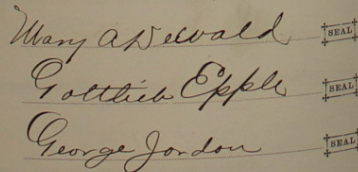 Mary A Dewald SEAL
Gottlieb Epple SEAL
George Jordon SEAL